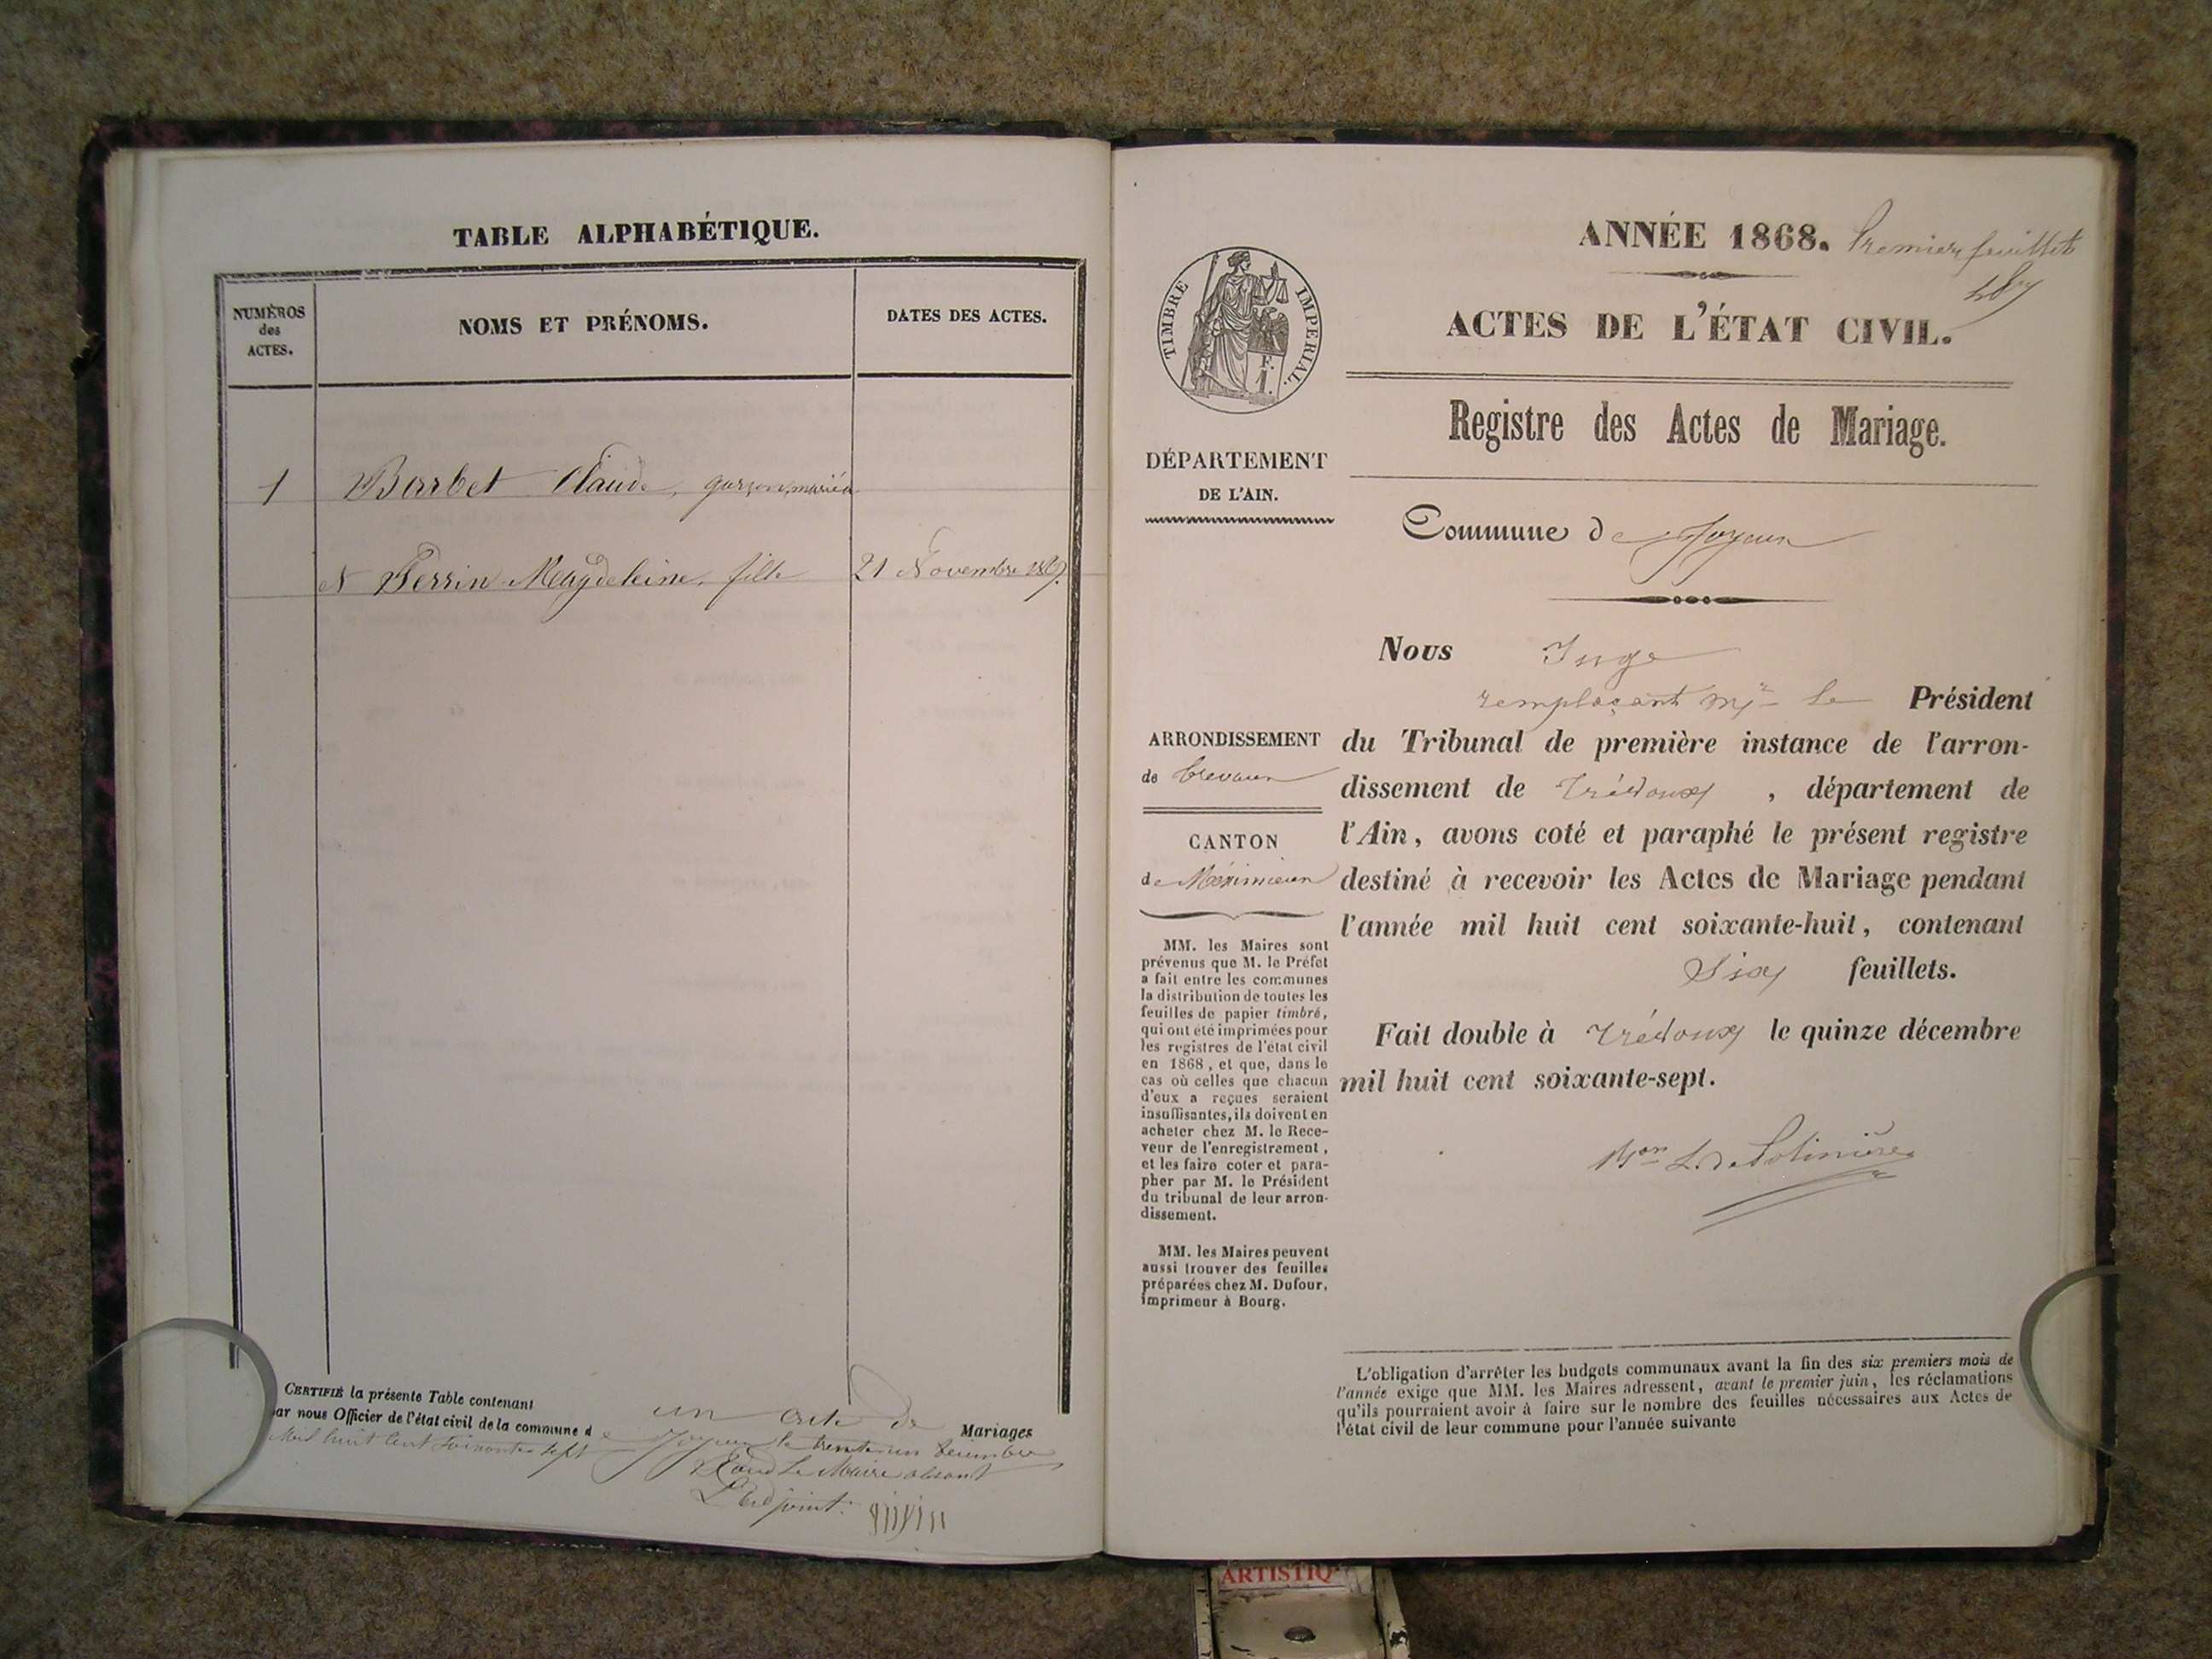 TABLE ALPHABÉTIQUE.
NUMÉROS
des
ACTES.
NOMS ET PRÉNOMS.
DATES DES ACTES.
1 Barbet Claude, garçon, mariés
et Perrin Magdeleine, fille 21 Novembre 1867.
CERTIFIÉ la présente Table contenant un acte de Mariages
par nous Officier de l'état civil de la commune de Joyeux le trente un Décembre
Mil huit cent soixante sept
Pour Le Maire absent
L'Adjoint.
ANNÉE 1868. Premier feuillet
ACTES DE L'ÉTAT CIVIL.
Registre des Actes de Mariage.
TIMBRE IMPERIAL.
F.
1.
DÉPARTEMENT
DE L'AIN.
Commune de Joyeux
Nous Juge
remplaçant Mr le Président
du Tribunal de première instance de l'arron-
dissement de Trévoux, département de
l'Ain, avons coté et paraphé le présent registre
destiné à recevoir les Actes de Mariage pendant
l'année mil huit cent soixante-huit, contenant
Six feuillets.
Fait double à Trévoux le quinze décembre
mil huit cent soixante-sept.
Bon L. De Polinière
ARRONDISSEMENT
de Trevoux
CANTON
de Méximieux
MM. les Maires sont
prévenus que M. le Préfet
a fait entre les communes
la distribution de toutes les
feuilles de papier timbré,
qui ont été imprimées pour
les registres de l'état civil
en 1868, et que, dans le
cas où celles que chacun
d'eux a reçues seraient
insuffisantes, ils doivent en
acheter chez M. le Rece-
veur de l'enregistrement,
et les faire coter et para-
pher par M. le Président
du tribunal de leur arron-
dissement.
MM. les Maires peuvent
aussi trouver des feuilles
préparées chez M. Dufour,
imprimeur à Bourg.
L'obligation d'arrêter les budgets communaux avant la fin des six premiers mois de
l'année exige que MM. les Maires adressent, avant le premier juin, les réclamations
qu'ils pourraient avoir à faire sur le nombre des feuilles nécessaires aux Actes de
l'état civil de leur commune pour l'année suivante
ARTISTIQ